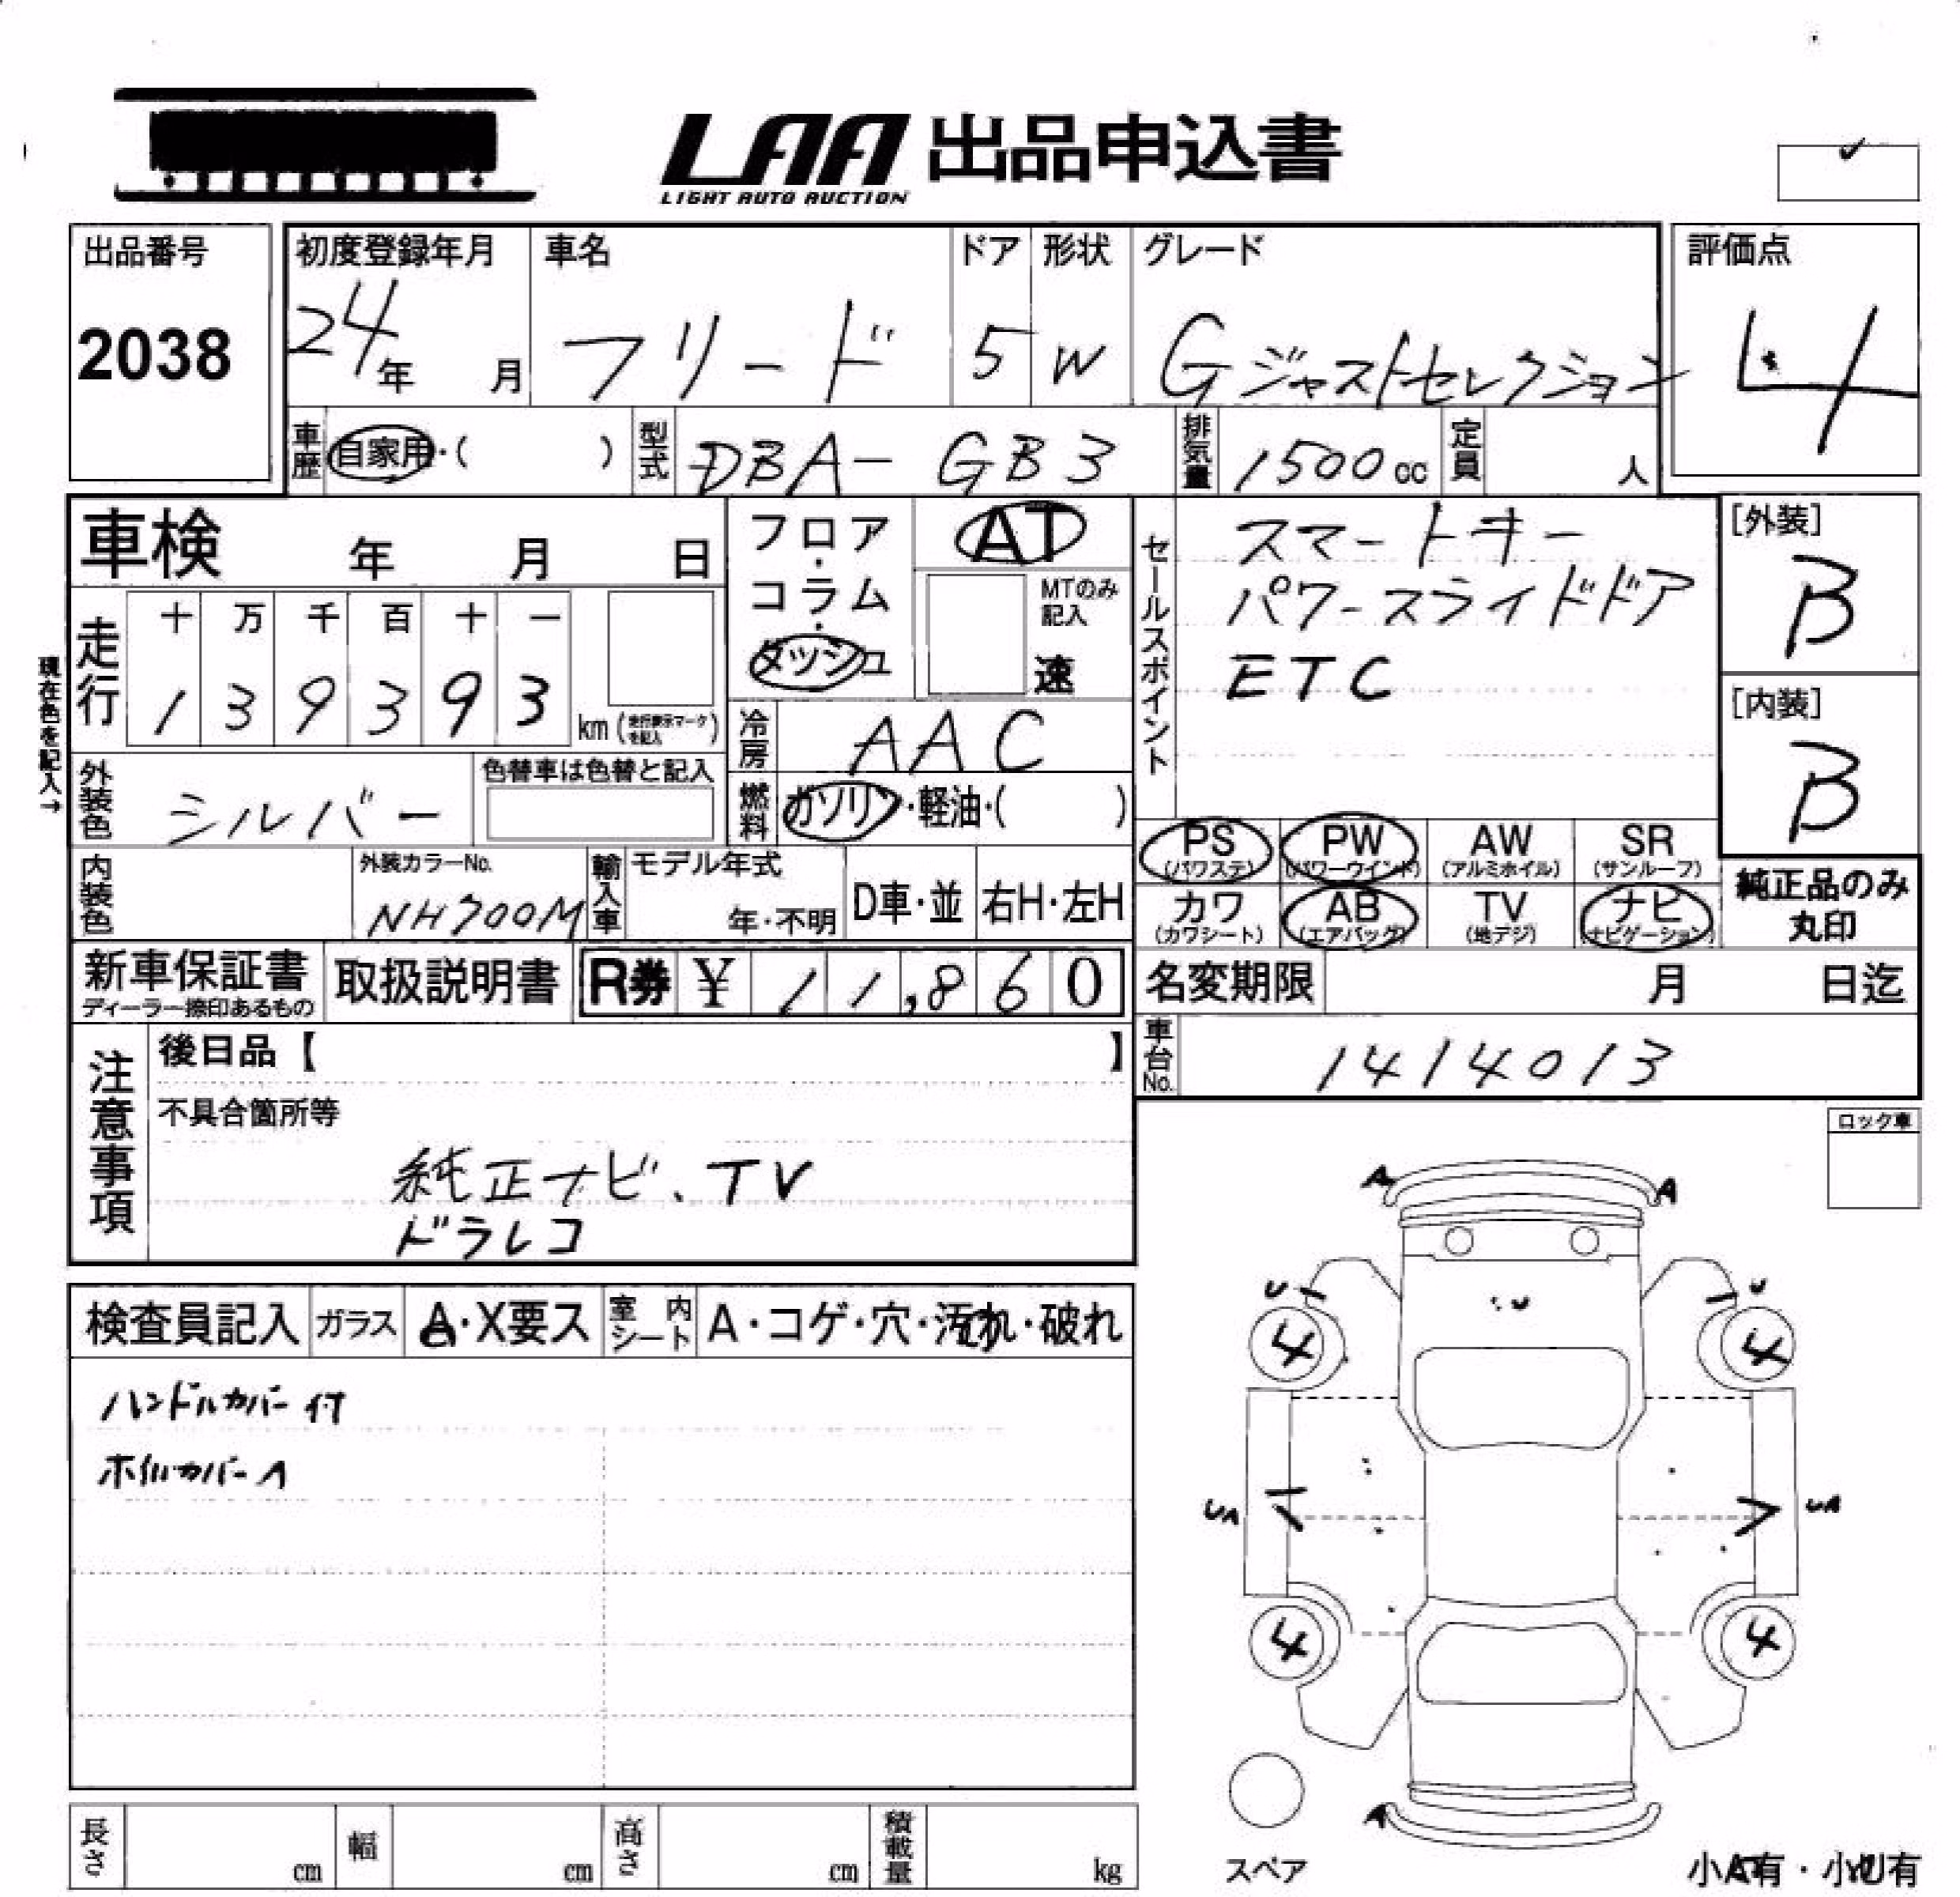 LAA 出品申込書
LIGHT AUTO AUCTION
出品番号
2038
初度登録年月
24年 月
車名
フリード
ドア
5
形状
W
グレード
G ジャストセレクション
評価点
4
車歴 自家用・( )
型式 DBA-GB3
排気量 1500cc
定員 人
車検 年 月 日
フロア・コラム・ダッシュ
AT
MTのみ記入
速
セールスポイント
スマートキー
パワースライドドア
ETC
[外装]
B
[内装]
B
現在色を記入→
走行
十 万 千 百 十 一
1 3 9 3 9 3
km (走行表示マークを記入)
冷房 AAC
外装色 シルバー
色替車は色替と記入
燃料 ガソリン・軽油・( )
PS (パワステ)
PW (パワーウインド)
AW (アルミホイル)
SR (サンルーフ)
カワ (カワシート)
AB (エアバッグ)
TV (地デジ)
ナビ (ナビゲーション)
純正品のみ
丸印
内装色
外装カラーNo.
NH700M
輸入車
モデル年式
年・不明
D車・並
右H・左H
新車保証書
ディーラー捺印あるもの
取扱説明書
R券 ¥ 11,860
名変期限 月 日迄
車台No. 1414013
注意事項
後日品【 】
不具合箇所等
純正ナビ、TV
ドラレコ
ロック車
検査員記入
ガラス A・X要ス
室内シート A・コゲ・穴・汚れ・破れ
ハンドルカバー付
ホイルカバーA
A A
U U
U
4 4
UA UA
4 4
A
スペア
小A有・小U有
長さ cm
幅 cm
高さ cm
積載量 kg